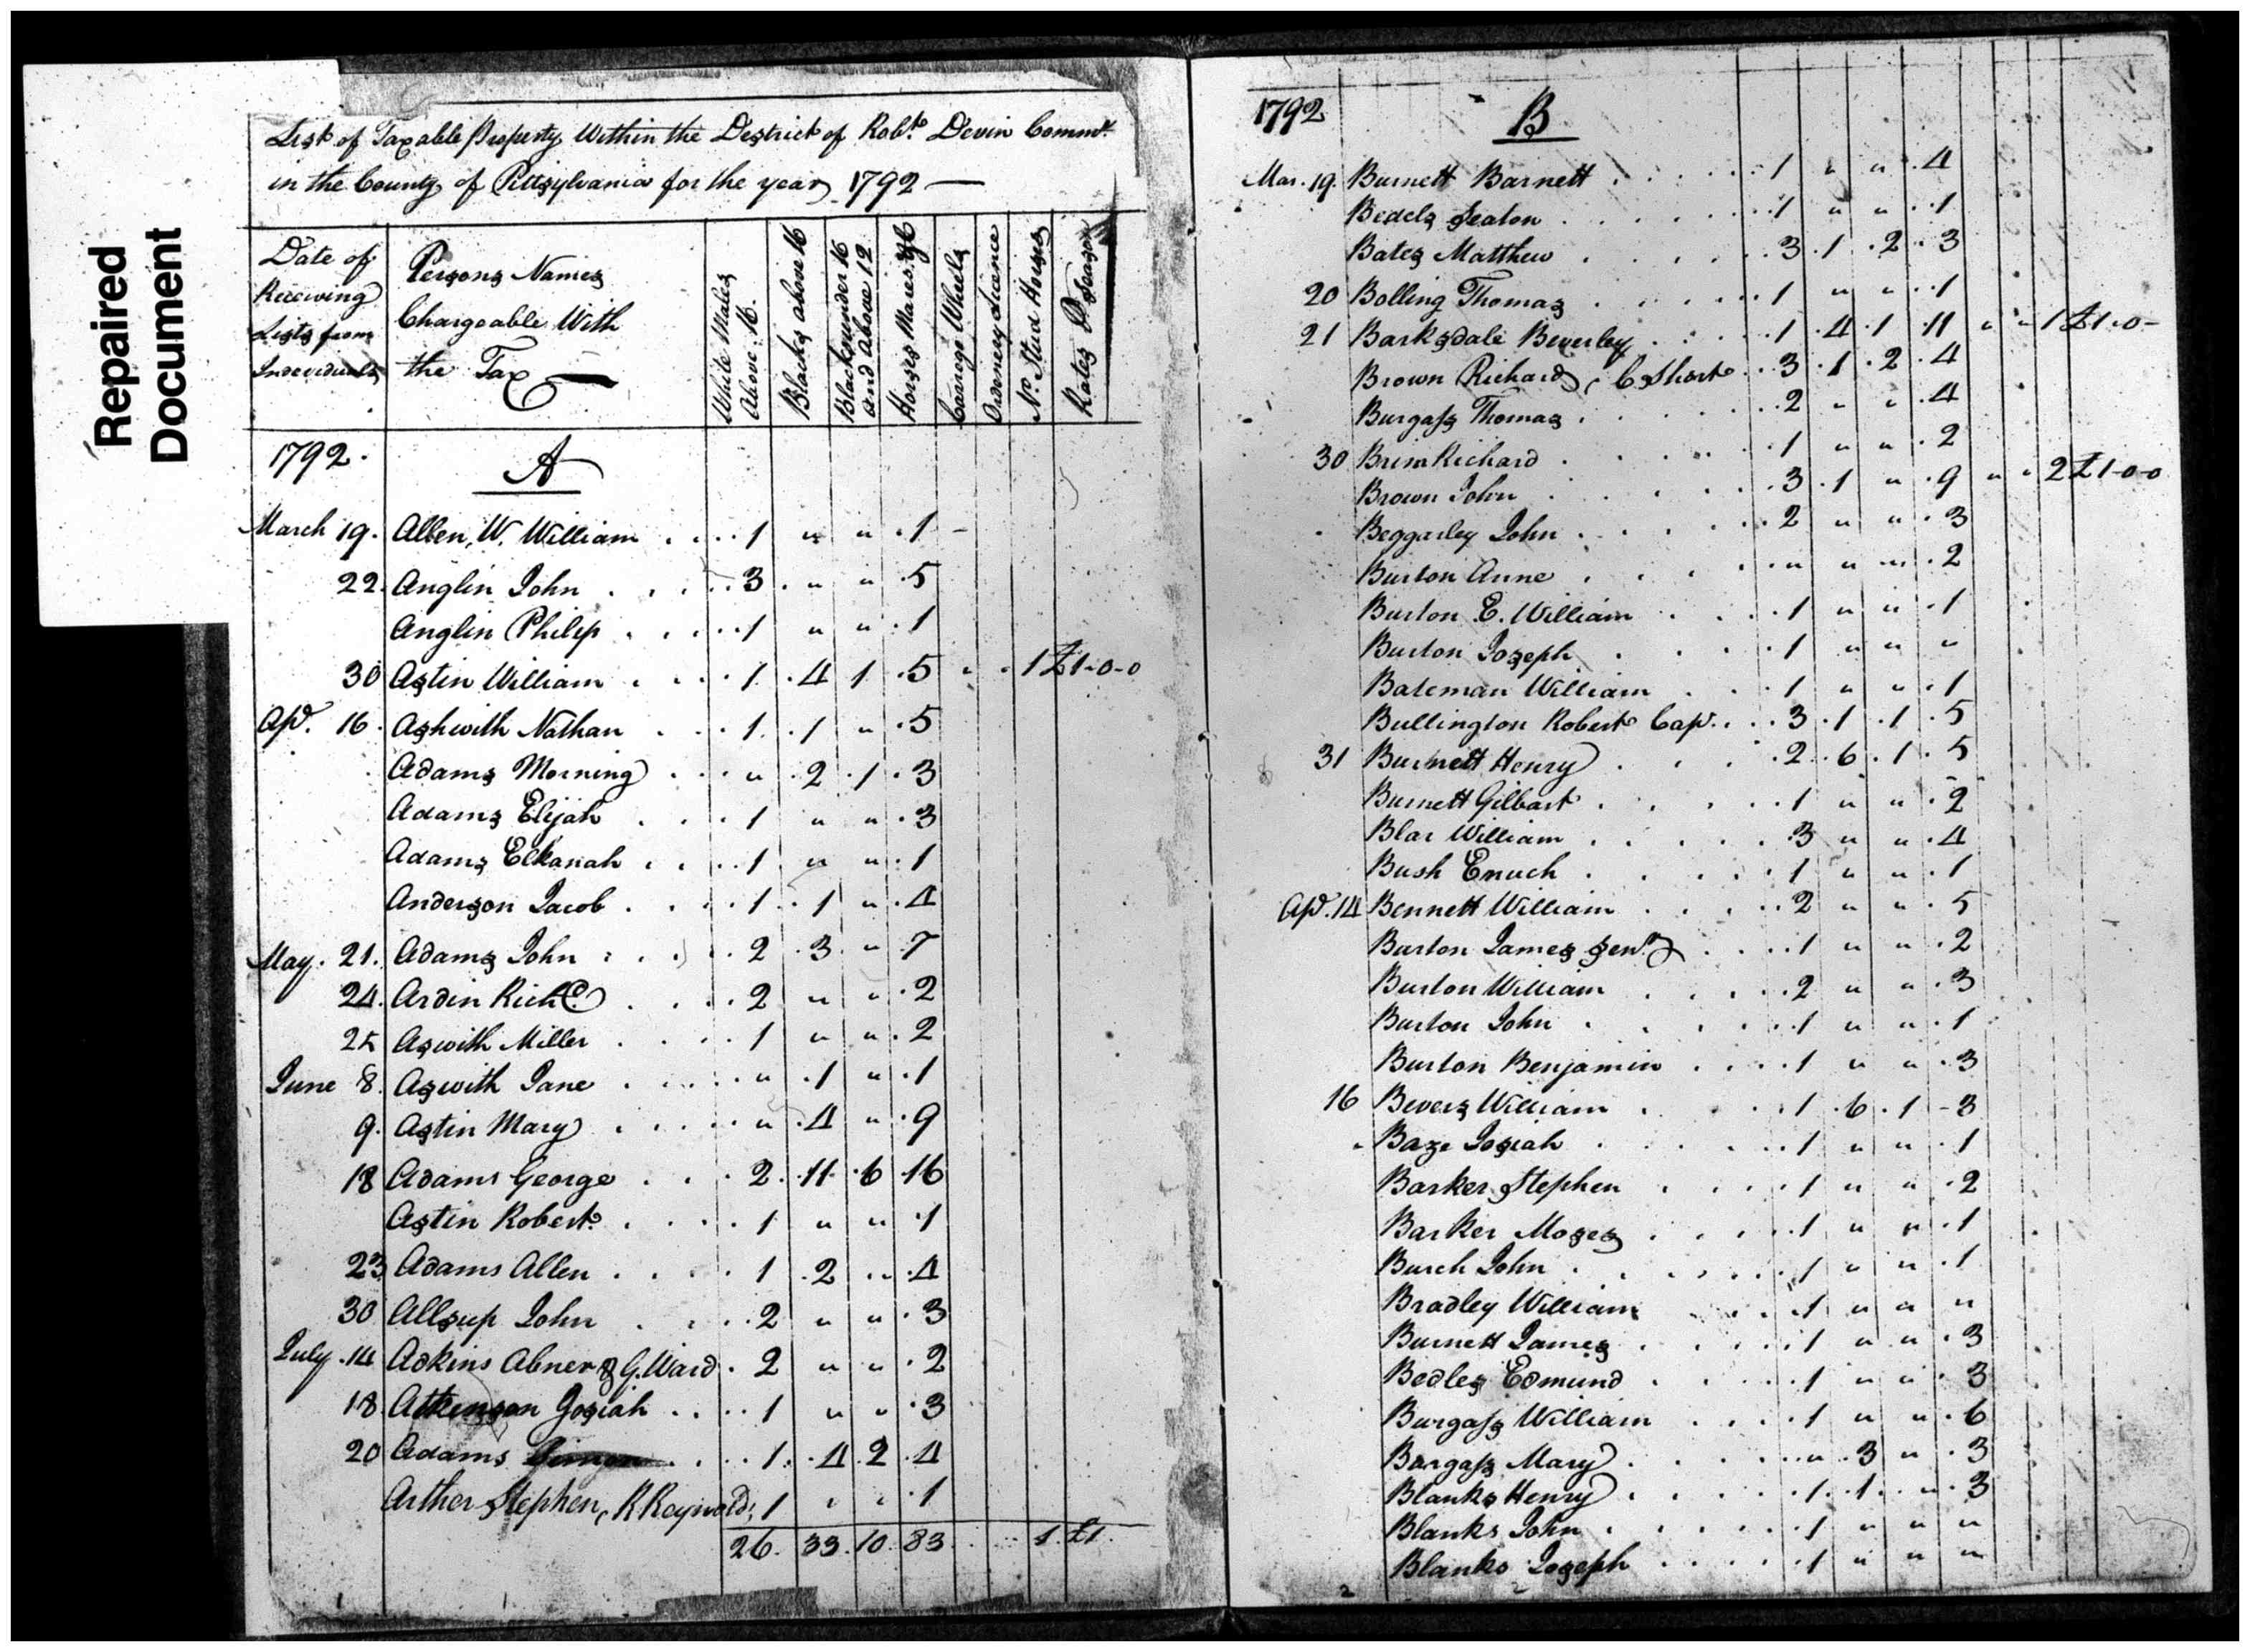 Repaired
Document
List of Taxable Property Within the District of Robt. Devin Commr.
in the County of Pittsylvania for the year 1792 —
Date of Receiving Lists from Individuals
Persons Names Chargeable With the Tax
White Males Above 16.
Blacks above 16
Blacks under 16 and above 12
Horses Mares &c
Carriage Wheels
Ordenery Licence
No. Stud Horses
Rates Pr. Season
1792. A
March 19. Allen, W. William 1 " " 1
22. Anglin John 3 " " 5
Anglin Philip 1 " " 1
30 Astin William 1 4 1 5 " " 1 £1-0-0
Apl. 16. Ashwith Nathan 1 1 " 5
Adams Morning " 2 1 3
Adams Elijah 1 " " 3
Adams Elkanah 1 " " 1
Anderson Jacob 1 1 " 4
May. 21. Adams John 2 3 " 7
24. Ardin Richd. 2 " " 2
25 Aswith Miller 1 " " 2
June 8. Aswith Jane " 1 " 1
9. Astin Mary " 4 " 9
18 Adams George 2 11 6 16
Astin Robert 1 " " 1
23 Adams Allen 1 2 " 4
30 Allsup John 2 " " 3
July 14 Adkins Abner & G. Ward 2 " " 2
18 Atkenson Josiah 1 " " 3
20 Adams 1 4 2 4
Arther Stephen, R Reynolds 1 " " 1
26. 33. 10. 83. 1. £1.
1792 B
Mar. 19. Burnett Barnett 1 " " 4
Bedels Seaton 1 " " 1
Bates Matthew 3 1 2 3
20 Bolling Thomas 1 " " 1
21 Barksdale Beverley 1 4 1 11 " " 1 £1-0-
Brown Richard, C. Short 3 1 2 4
Burgass Thomas 2 " " 4
30 Brim Richard 1 " " 2
Brown John 3 1 " 9 " " 2 £1-0-0
Beggarley John 2 " " 3
Burton Anne " " " 2
Burton E. William 1 " " 1
Burton Joseph 1 " " "
Bateman William 1 " " 1
Bullington Robert Cap. 3 1 1 5
31 Burnett Henry 2 6 1 5
Burnett Gilbart 1 " " 2
Blar William 3 " " 4
Bush Enuch 1 " " 1
Apl. 14 Bennett William 2 " " 5
Burton James Senr. 1 " " 2
Burton William 2 " " 3
Burton John 1 " " 1
Burton Benjamin 1 " " 3
16 Bevers William 1 6 1 3
Baze Josiah 1 " " 1
Barker Stephen 1 " " 2
Barker Moses 1 " " 1
Burch John 1 " " 1
Bradley William 1 " " "
Burnett James 1 " " 3
Bedles Edmund 1 " " 3
Burgass William 1 " " 6
Burgass Mary " 3 " 3
Blanks Henry 1 1 " 3
Blanks John 1 " " "
Blanks Joseph 1 " " "
2